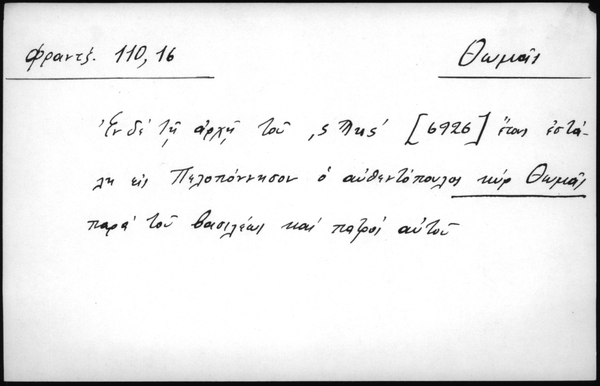 Φραντζ. 110,16
Θωμᾶς
Ἐν δὲ τῇ ἀρχῇ τοῦ ,ςϠκςʹ [6926] ἔτους ἐστά-
λη εἰς Πελοπόννησον ὁ αὐθεντόπουλος κύρ Θωμᾶς
παρὰ τοῦ βασιλέως καὶ πατρὸς αὐτοῦ